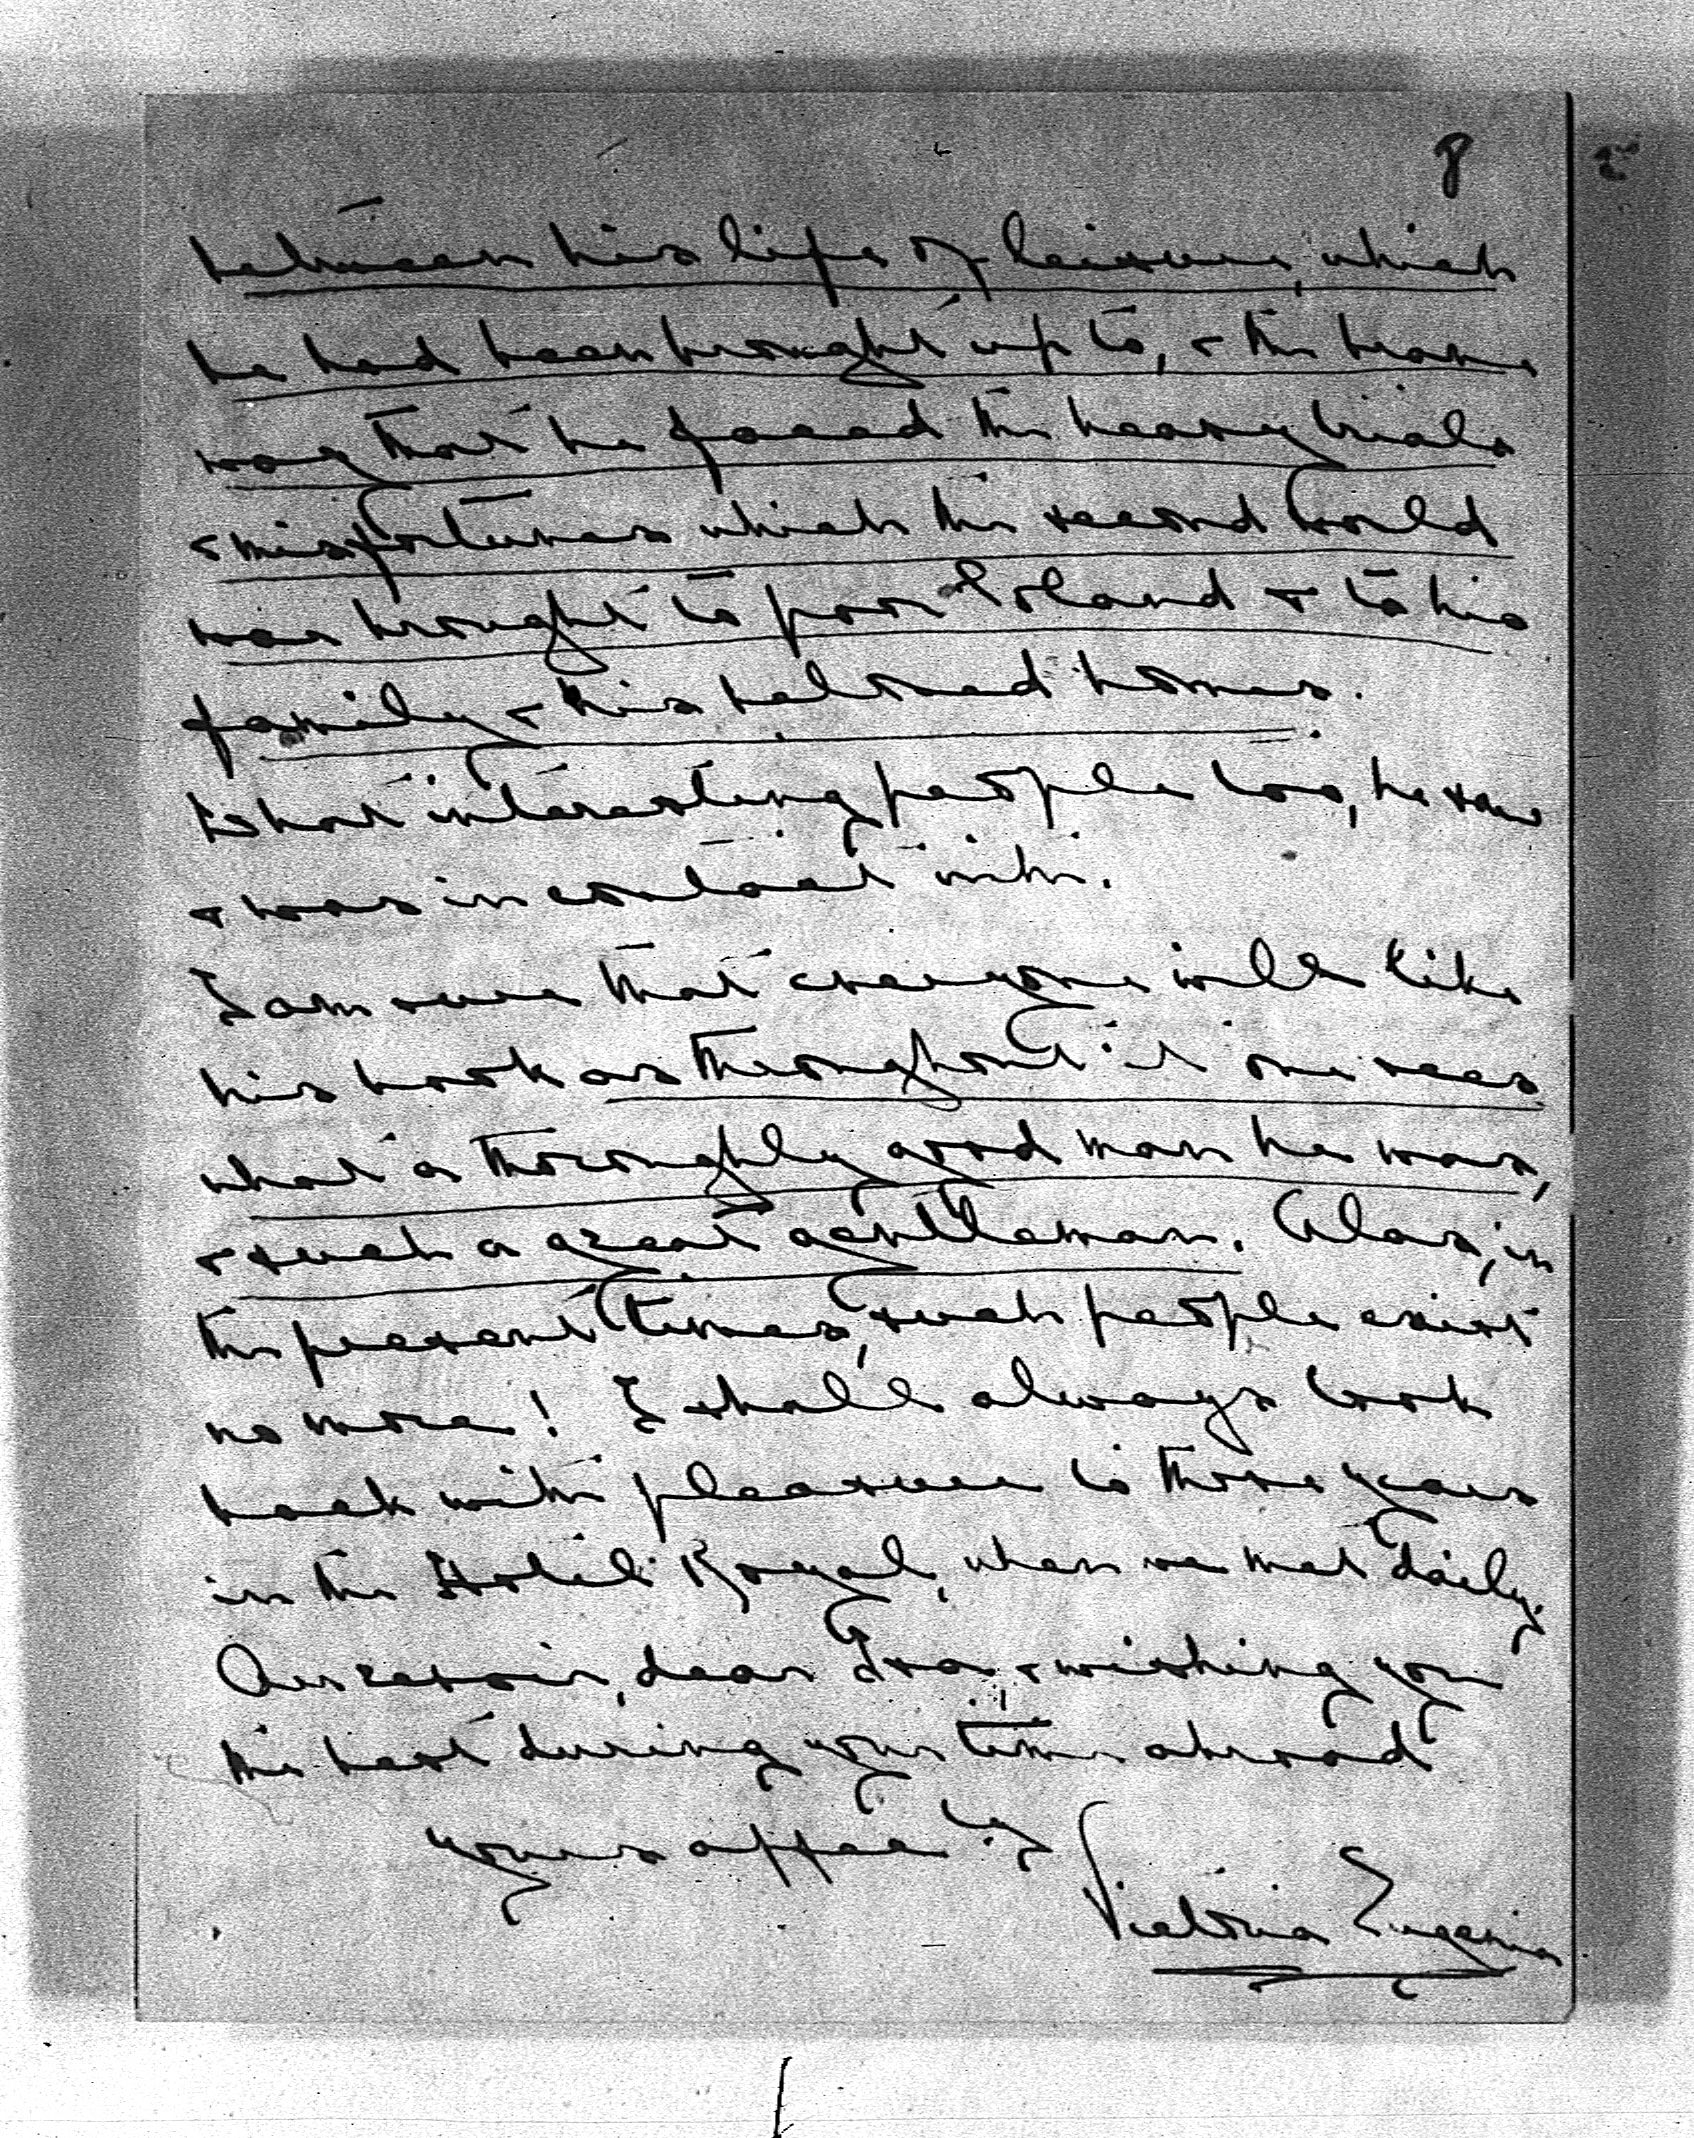 8
between his life of leisure, which
he had been brought up to, & the brave
way that he faced the heavy trials
& misfortunes which the second world
war brought to poor Poland & to his
family & his beloved homes.
What interesting people too, he saw
& was in contact with.
I am sure that everyone will like
his book as throughout it one sees
what a thoroughly good man he was,
& such a great gentleman. Alas, in
the present times, such people exist
no more! I shall always look
back with pleasure to those years
in the Hotel Royal, when we met daily.
Au revoir, dear & wishing you
the best during your time abroad
yours affec ly
Victoria Eugenia